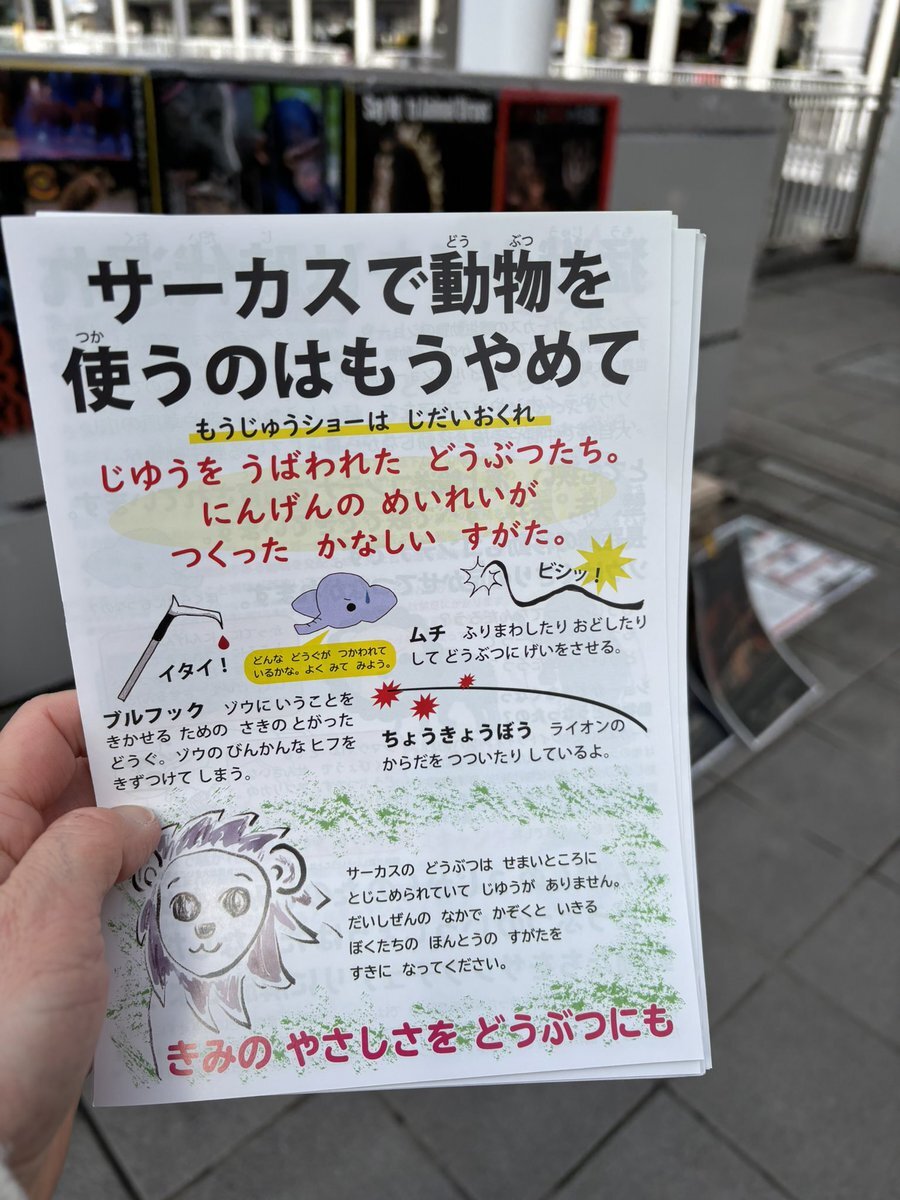 サーカスで動物を
どう ぶつ
使うのはもうやめて
つか
もうじゅうショーは じだいおくれ
じゆうを うばわれた どうぶつたち。
にんげんの めいれいが
つくった かなしい すがた。
イタイ！
どんな どうぐが つかわれて
いるかな。よく みて みよう。
ビシッ！
ムチ ふりまわしたり おどしたり
して どうぶつに げいをさせる。
ブルフック ゾウに いうことを
きかせる ための さきの とがった
どうぐ。ゾウの びんかんな ヒフを
きずつけて しまう。
ちょうきょうぼう ライオンの
からだを つついたり しているよ。
サーカスの どうぶつは せまいところに
とじこめられていて じゆうが ありません。
だいしぜんの なかで かぞくと いきる
ぼくたちの ほんとうの すがたを
すきに なってください。
きみの やさしさを どうぶつにも